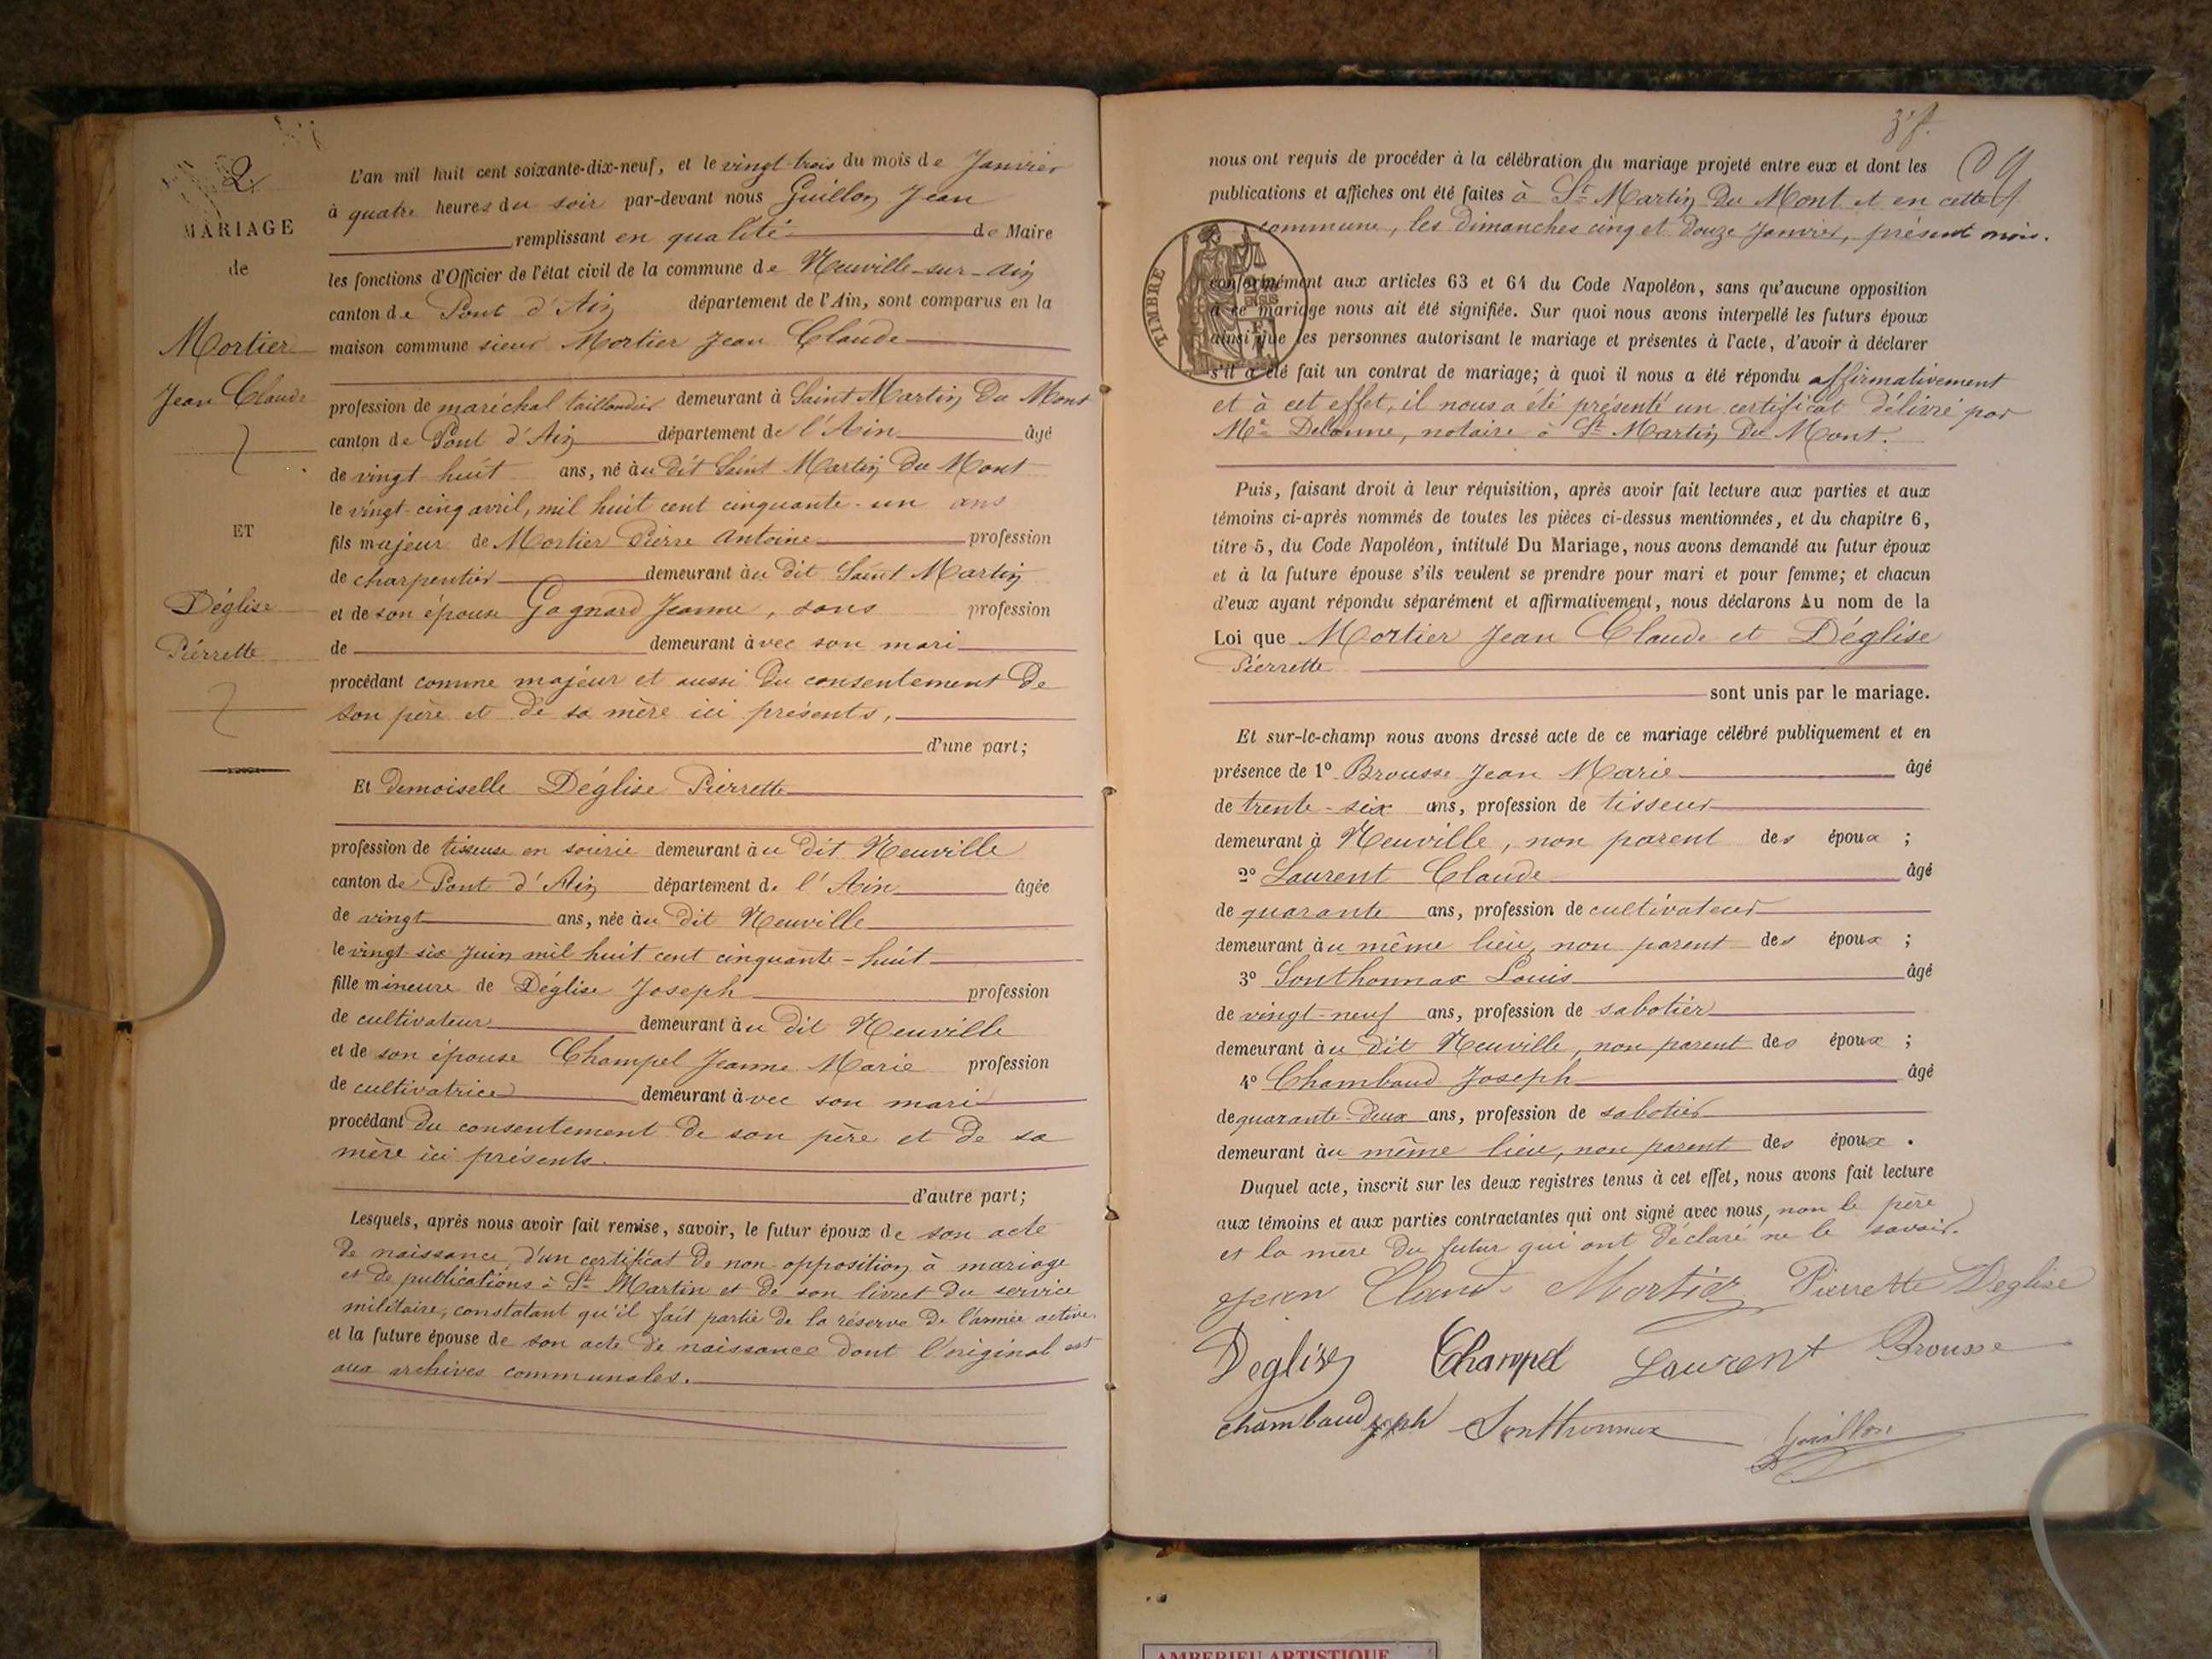 2.
MARIAGE
de
Mortier
Jean Claude
ET
Déglise
Pierrette
L'an mil huit cent soixante-dix-neuf, et le vingt-trois du mois de Janvier
à quatre heures du soir par-devant nous Guillon Jean
remplissant en qualité de Maire
les fonctions d'Officier de l'état civil de la commune de Neuville-sur-Ain
canton de Pont d'Ain département de l'Ain, sont comparus en la
maison commune sieur Mortier Jean Claude
profession de maréchal taillandier demeurant à Saint Martin du Mont
canton de Pont d'Ain département de l'Ain âgé
de vingt huit ans, né au dit Saint Martin du Mont
le vingt-cinq avril, mil huit cent cinquante-un ans
fils majeur de Mortier Pierre Antoine profession
de charpentier demeurant au dit Saint Martin
et de son épouse Gagnard Jeanne, sans profession
de demeurant avec son mari
procédant comme majeur et aussi du consentement de
son père et de sa mère ici présents,
d'une part;
Et demoiselle Déglise Pierrette
profession de tisseuse en soierie demeurant au dit Neuville
canton de Pont d'Ain département de l'Ain âgée
de vingt ans, née au dit Neuville
le vingt-six Juin mil huit cent cinquante-huit
fille mineure de Déglise Joseph profession
de cultivateur demeurant au dit Neuville
et de son épouse Champel Jeanne Marie profession
de cultivatrice demeurant avec son mari
procédant du consentement de son père et de sa
mère ici présents.
d'autre part;
Lesquels, après nous avoir fait remise, savoir, le futur époux de son acte
de naissance, d'un certificat de non-opposition à mariage
et de publications à St Martin et de son livret du service
militaire, constatant qu'il fait partie de la réserve de l'armée active.
et la future épouse de son acte de naissance dont l'original est
aux archives communales.
nous ont requis de procéder à la célébration du mariage projeté entre eux et dont les
publications et affiches ont été faites à St Martin du Mont et en cette
commune, les dimanches cinq et douze Janvier, présent mois.
TIMBRE
conformément aux articles 63 et 64 du Code Napoléon, sans qu'aucune opposition
à ce mariage nous ait été signifiée. Sur quoi nous avons interpellé les futurs époux
ainsi que les personnes autorisant le mariage et présentes à l'acte, d'avoir à déclarer
s'il a été fait un contrat de mariage; à quoi il nous a été répondu affirmativement
et à cet effet, il nous a été présenté un certificat délivré par
Me notaire à St Martin du Mont.
Puis, faisant droit à leur réquisition, après avoir fait lecture aux parties et aux
témoins ci-après nommés de toutes les pièces ci-dessus mentionnées, et du chapitre 6,
titre 5, du Code Napoléon, intitulé Du Mariage, nous avons demandé au futur époux
et à la future épouse s'ils veulent se prendre pour mari et pour femme; et chacun
d'eux ayant répondu séparément et affirmativement, nous déclarons Au nom de la
Loi que Mortier Jean Claude et Déglise
Pierrette
sont unis par le mariage.
Et sur-le-champ nous avons dressé acte de ce mariage célébré publiquement et en
présence de 1° Brousse Jean Marie âgé
de trente-six ans, profession de tisseur
demeurant à Neuville, non parent des époux ;
2° Laurent Claude âgé
de quarante ans, profession de cultivateur
demeurant au même lieu, non parent des époux ;
3° Sonthonnax Louis âgé
de vingt-neuf ans, profession de sabotier
demeurant au dit Neuville, non parent des époux ;
4° Chambaud Joseph âgé
de quarante-deux ans, profession de sabotier
demeurant au même lieu, non parent des époux .
Duquel acte, inscrit sur les deux registres tenus à cet effet, nous avons fait lecture
aux témoins et aux parties contractantes qui ont signé avec nous, non le père
et la mère du futur qui ont déclaré ne le savoir.
Jean Claude Mortier Pierrette Deglise
Deglise Champel Laurent Brousse
chambaud joseph Sonthonnax Guillon
AMBERIEU ARTISTIQUE